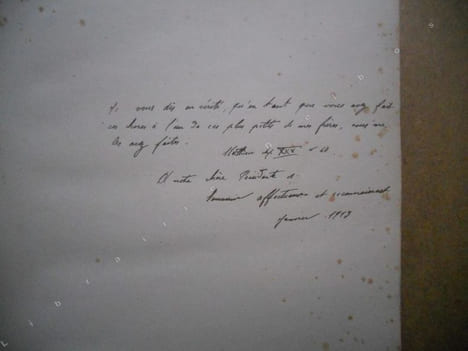 Je vous dis en vérité, qu'en tant que vous avez fait
ces choses à l'un de ces plus petits de mes frères, vous me
les avez faites.
Matthieu
A notre chère Présidente
Souvenir affectueux et reconnaissant
Janvier 1913